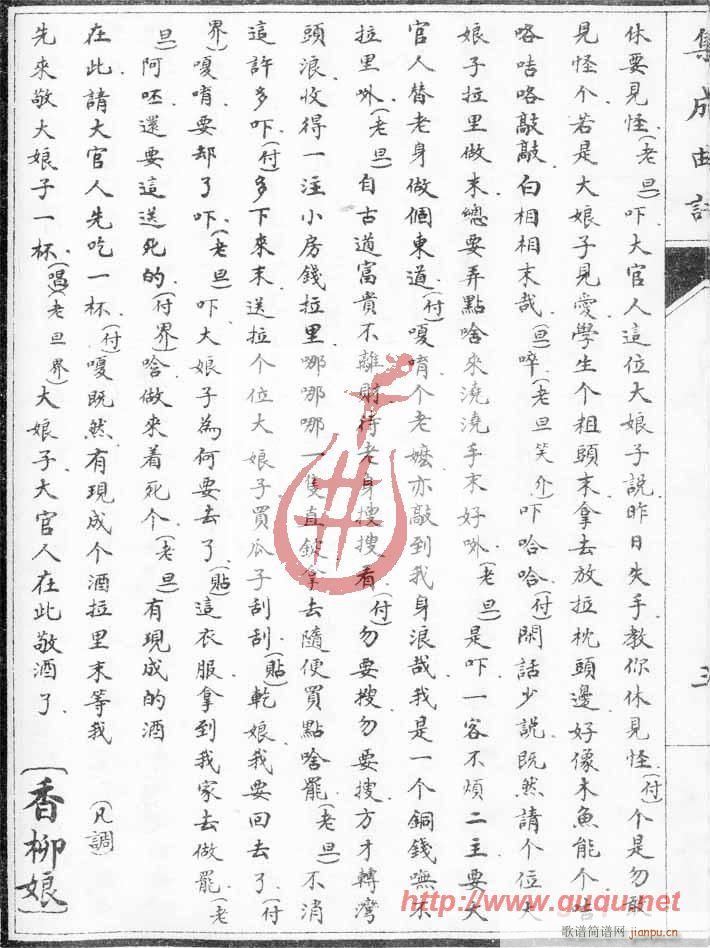 集成曲譜
休要見怪(老旦)吓大官人這位大娘子説昨日失手教你休見怪(付)个是勿敢
見怪个若是大娘子見愛學生个粗頭末拿去放拉枕頭邊好像木魚能个咭
咯咭咯敲敲白相相末哉(旦)啐(老旦笑介)吓哈哈(付)閑話少説既然請个位大
娘子拉里做末總要弄點啥來澆澆手末好𠰻(老旦)是吓一客不煩二主要大
官人替老身做個東道(付)嗄唷个老嬷亦敲到我身浪哉我是一个銅錢嘸不
拉里𠰻(老旦)自古道富貴不離財待老身搜搜看(付)勿要搜勿要搜方才轉灣
頭浪收得一注小房錢拉里哪哪哪一隻直錠拿去隨便買點啥罷(老旦)不消
這許多吓(付)多下來末送拉个位大娘子買瓜子刮刮(貼)乾娘我要回去了(付
界)嗄唷要却了吓(老旦)吓大娘子為何要去了(貼)這衣服拿到我家去做罷(老
旦)阿呸還要這送死的(付界)啥做來着死个(老旦)有現成的酒
在此請大官人先吃一杯(付)嗄既然有現成个酒拉里末等我
先來敬大娘子一杯(唱)(老旦界)大娘子大官人在此敬酒了
(凡調)
〔香柳娘〕
http://www.guqu.net
歌谱简谱网
jianpu.cn